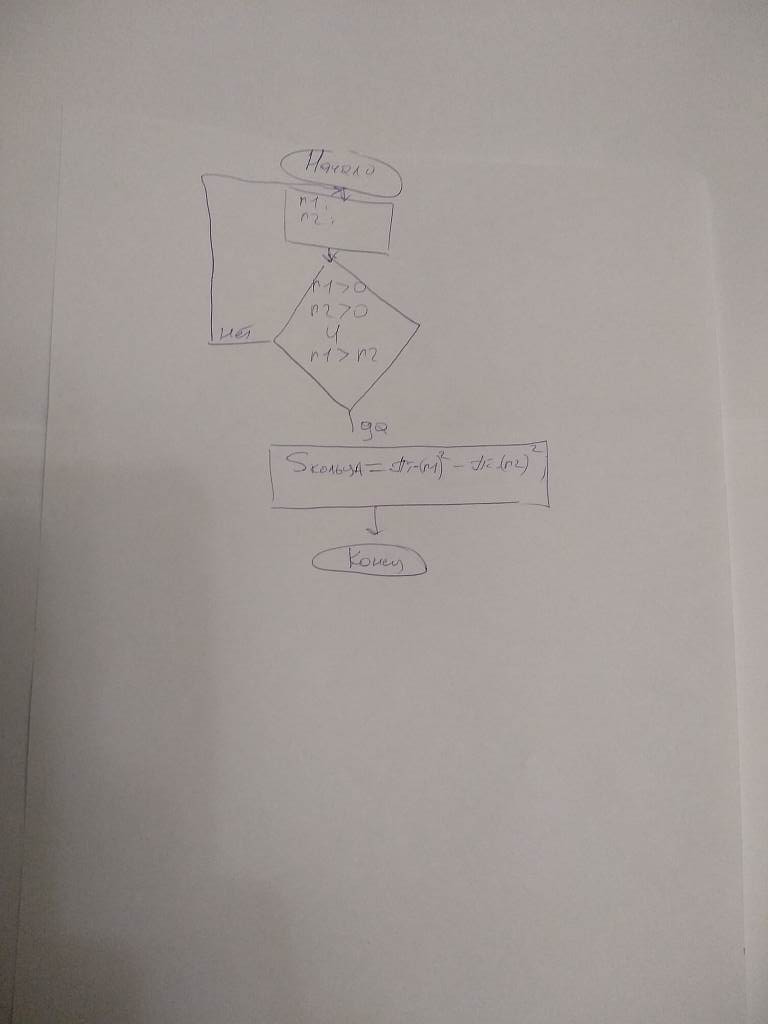 Начало
r1;
r2;
r1>0
r2>0
И
r1>r2
нет
да
Sкольца = π·(r1)² - π·(r2)²;
Конец